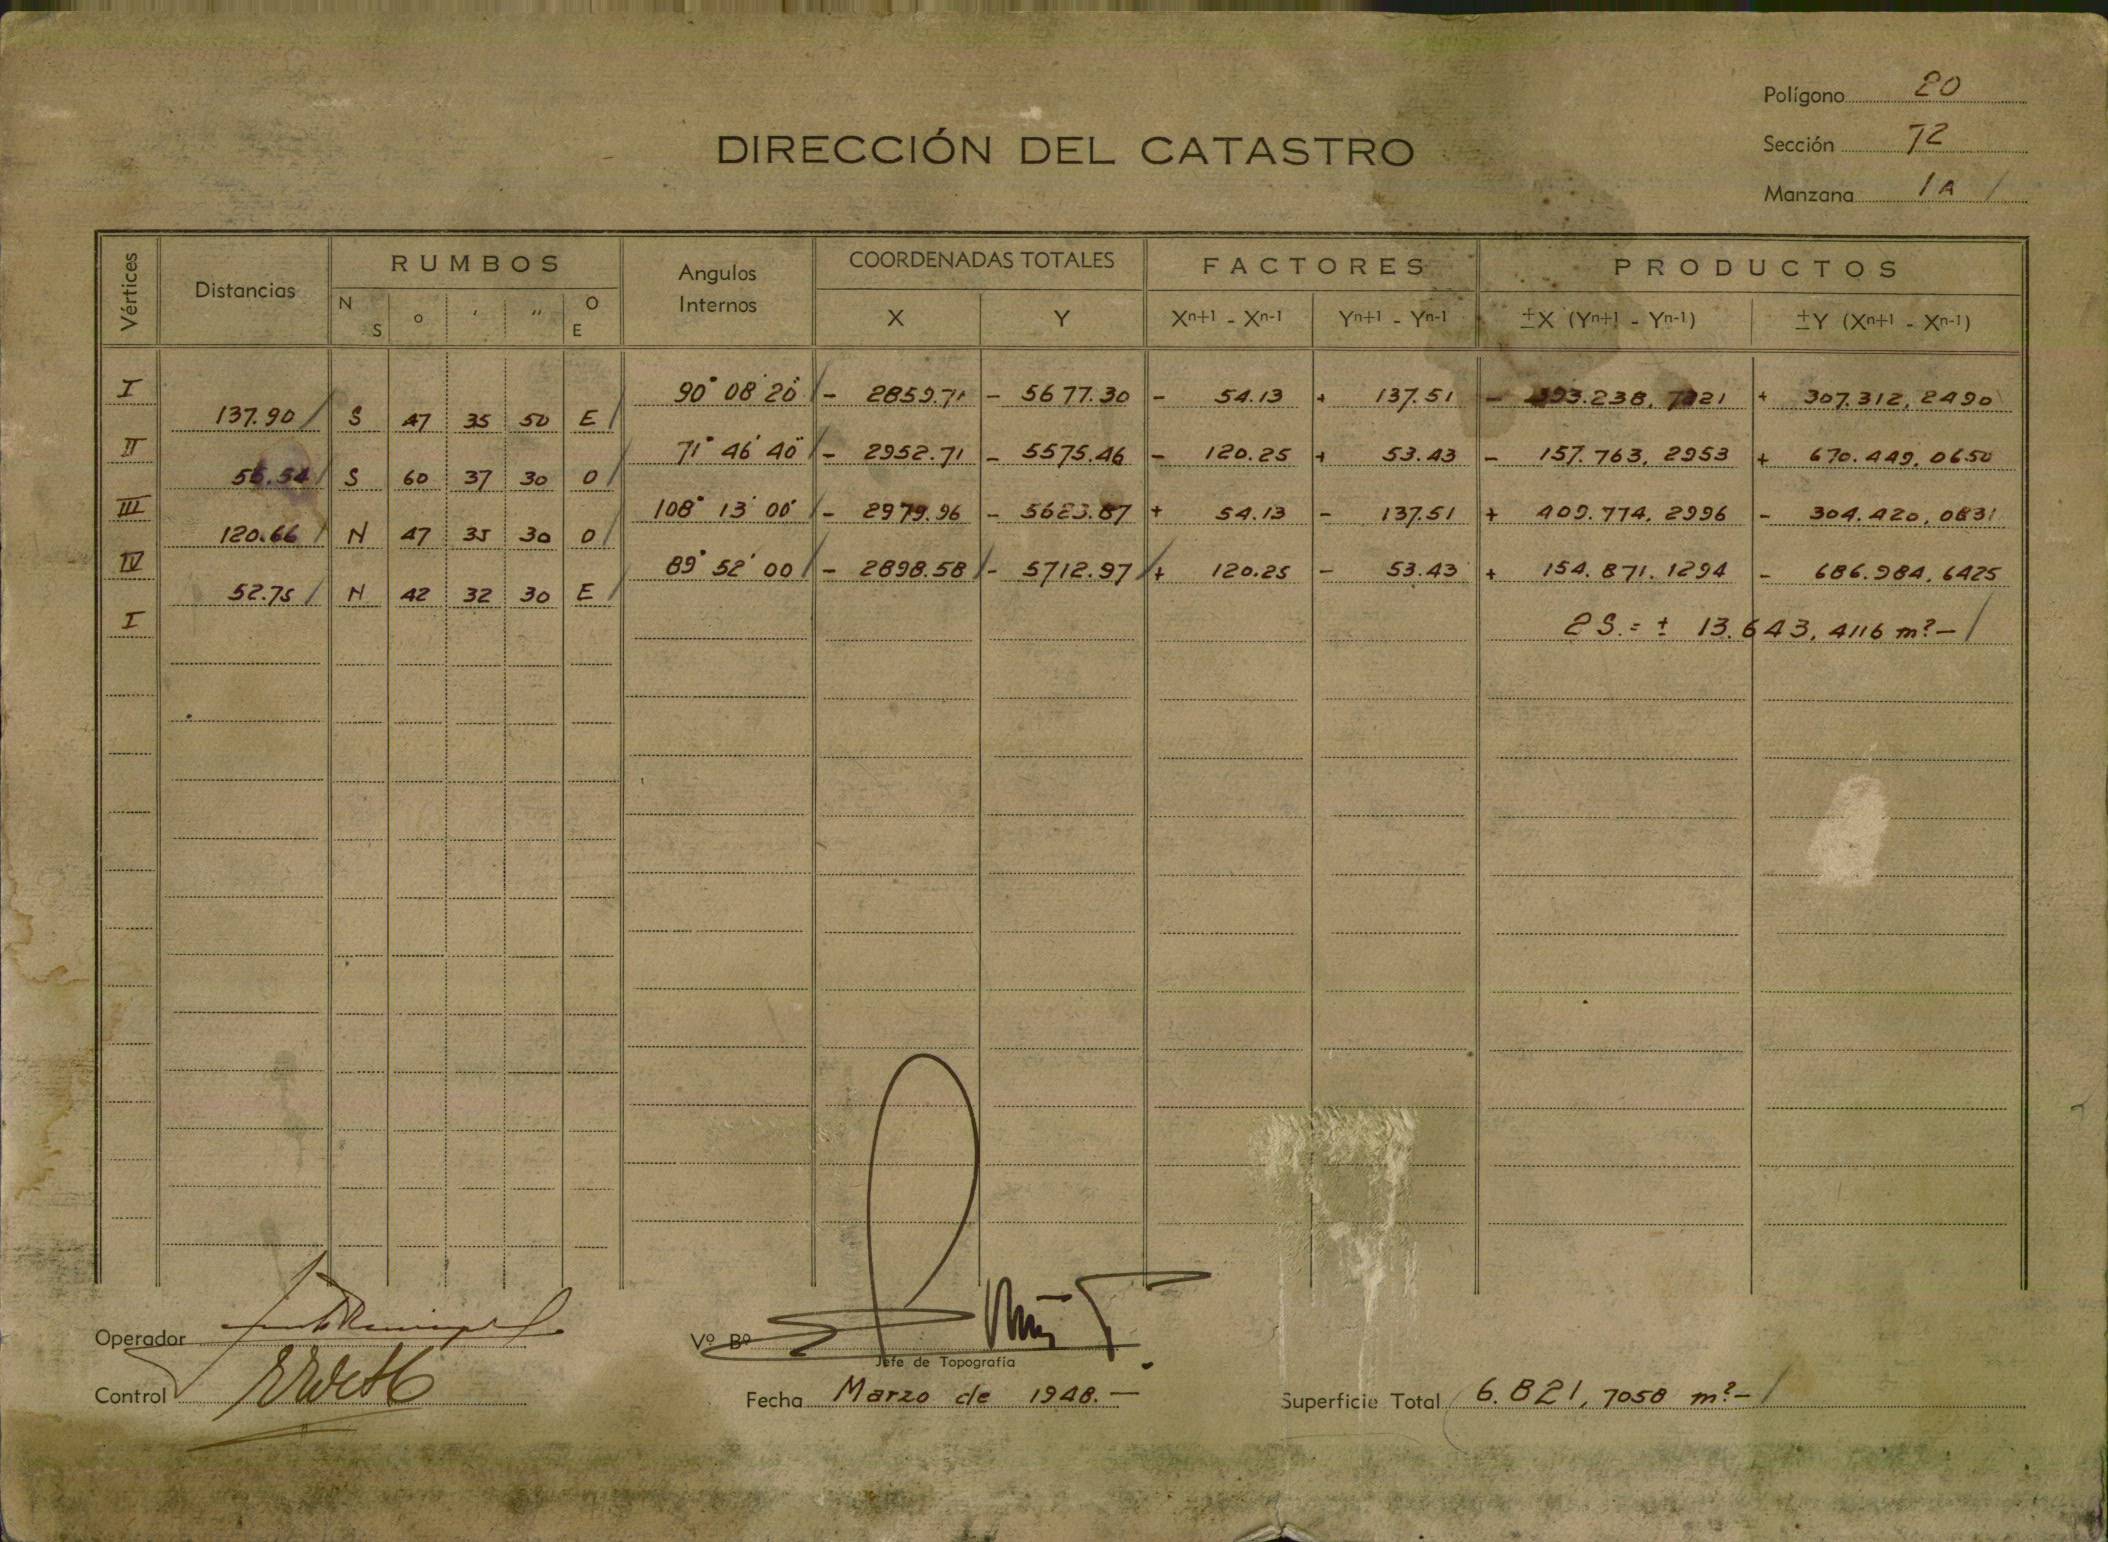 Polígono 20
DIRECCIÓN DEL CATASTRO
Sección 72
Manzana 1A /
Vértices Distancias RUMBOS Angulos Internos COORDENADAS TOTALES FACTORES PRODUCTOS
N S o ' '' O E X Y Xn+1 - Xn-1 Yn+1 - Yn-1 ±X (Yn+1 - Yn-1) ±Y (Xn+1 - Xn-1)
I 90° 08' 20" / - 2859.71 - 5677.30 - 54.13 + 137.51 - 393.238, 7221 + 307.312, 2490
137.90 / S 47 35 50 E /
II 71° 46' 40" / - 2952.71 - 5575.46 - 120.25 + 53.43 - 157.763, 2953 + 670.449, 0650
55.54 / S 60 37 30 O /
III 108° 13' 00" - 2979.96 - 5623.87 + 54.13 - 137.51 + 409.774, 2996 - 304.420, 0831
120.66 / N 47 35 30 O /
IV 89° 52' 00 / - 2898.58 / - 5712.97 / + 120.25 - 53.43 + 154.871, 1294 - 686.984, 6425
52.75 / N 42 32 30 E /
I 2S. = ± 13.643, 4116 m² - /
Operador
Vº Bº
Jefe de Topografía
Control
Fecha Marzo de 1948. -
Superficie Total 6.821, 7058 m² - /